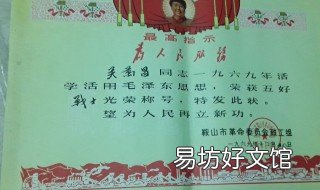 最高指示
为人民服务
吴菊昌同志一九六九年活
学活用毛泽东思想,荣获五好
战士光荣称号,特发此状。
望为人民再立新功。
鞍山市革命委员会
一九六九年十二月
易坊好文馆